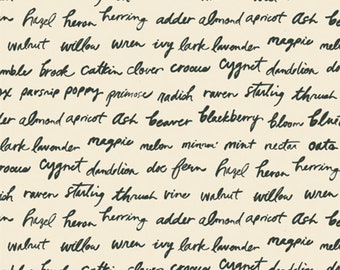 hazel heron herring adder almond apricot ash b
walnut willow wren ivy lark lavender magpie melon
mble brook catkin clover crocus cygnet dandelion do
ox parsnip poppy primrose radish raven starling thrush
der almond apricot ash beaver blackberry bloom blue
lark lavender magpie melon minnow mint nectar oats
crocus cygnet dandelion doe fern hazel heron herring
ish raven starling thrush vine walnut willow wren
n hazel heron herring adder almond apricot ash b
walnut willow wren ivy lark lavender magpie melon
mble brook catkin clover crocus cygnet dandelion